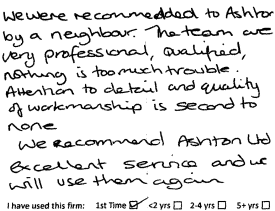 We were recommended to Ashton
by a neighbour. The team are
very professional, qualified,
nothing is too much trouble.
Attention to detail and quality
of workmanship is second to
none
We recommend Ashton Ltd
Excellent service and we
will use them again
I have used this firm: 1st Time ☑ <2 yrs ☐ 2-4 yrs ☐ 5+ yrs ☐